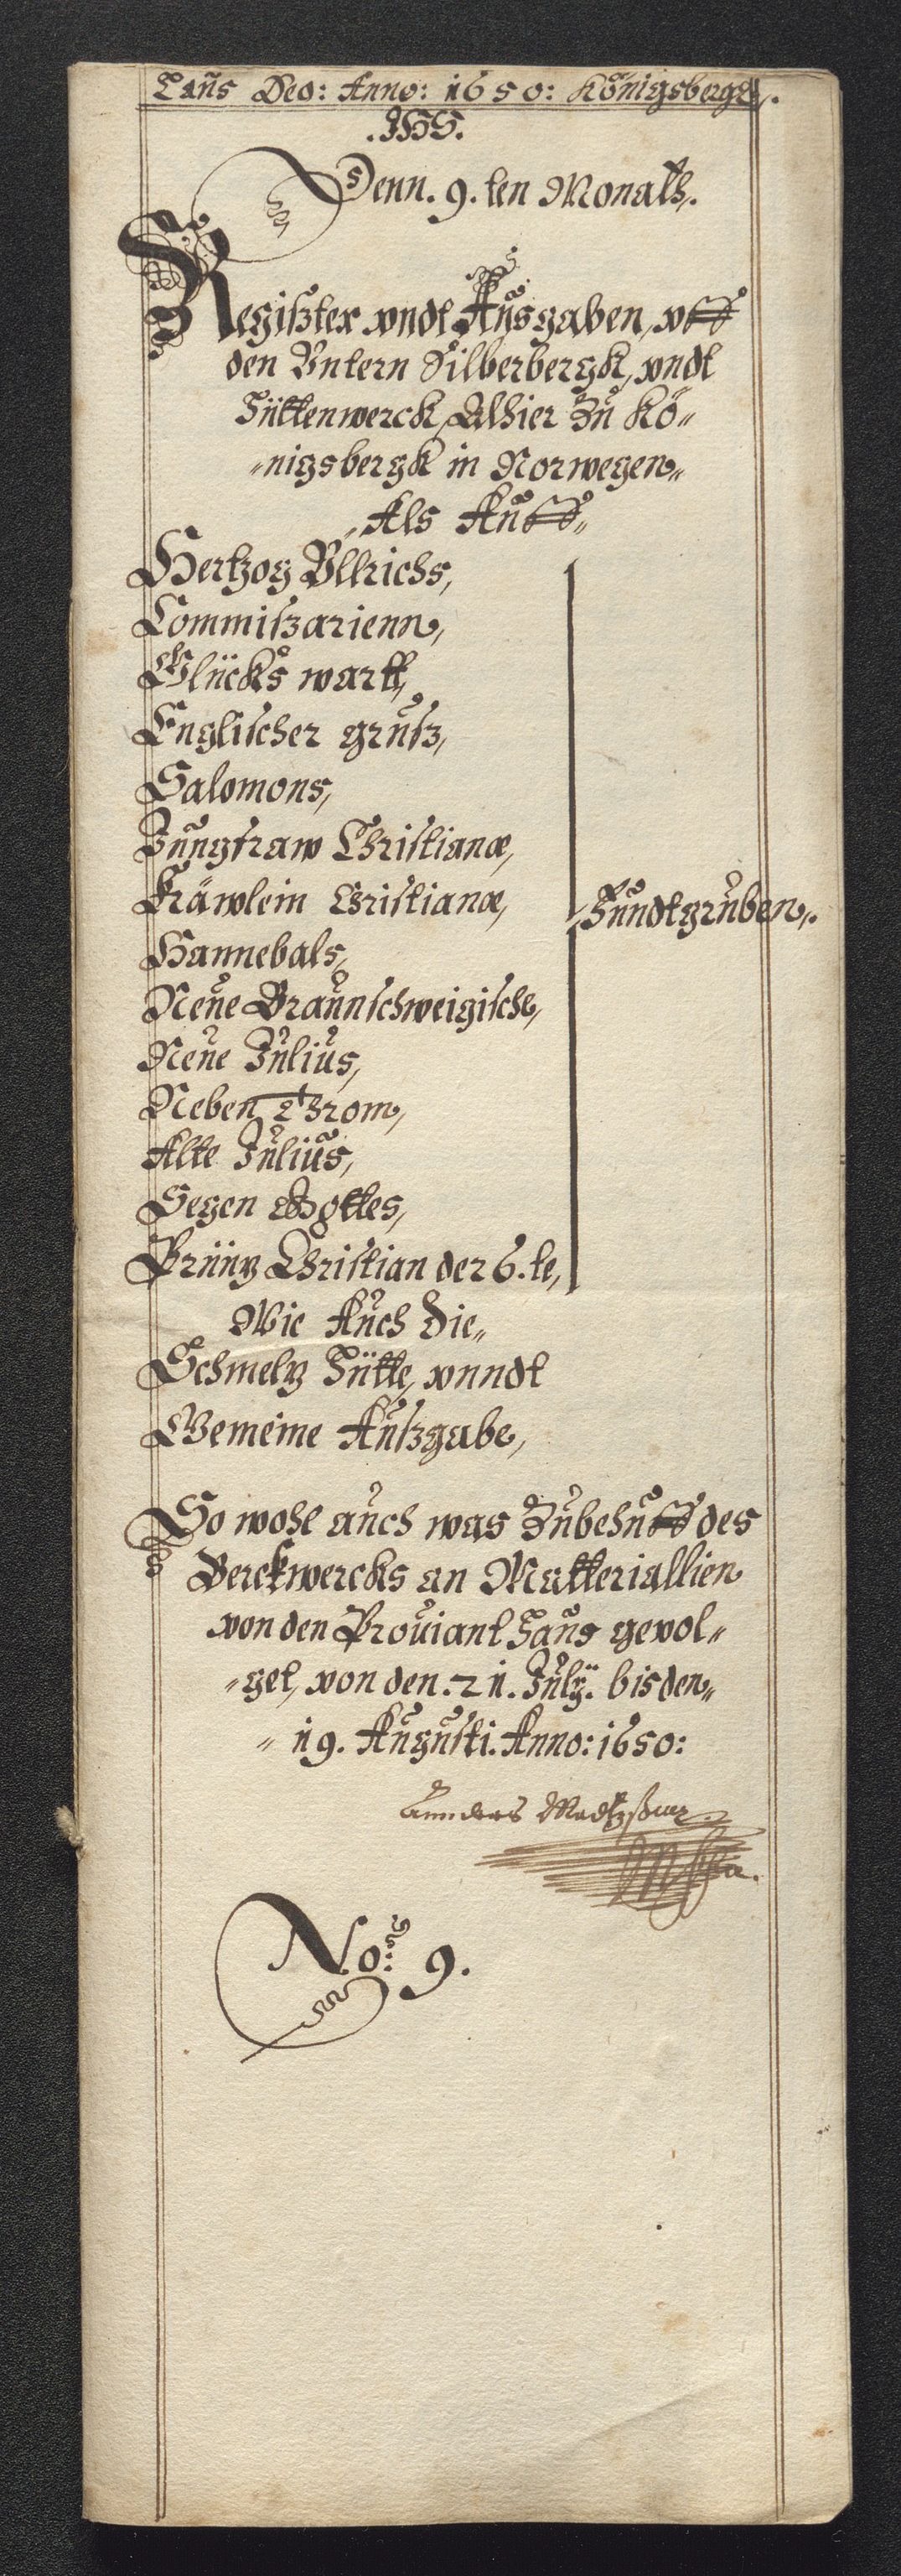 Laus Deo: Anno: 1650: Königsbergk,.
.IHS.
Denn. 9. ten Monath,.
Registter vndt Ausgaben, vff
den Vntern Silberbergk, vndt
Hüttenwerck, Alhier Zu Kö„
„nigsbergk in Norwegen„
„Als Auff„
Hertzog Vllrichs,
Commißarienn,
Glücks wartt,
Englischer gruß,
Salomons,
Jungfraw Christianæ,
Fräwlein Christianæ,
Hannebals,
Neue Braunschweigische,
Neue Julius,
Neben
Alte Julius,
Segen Gottes,
Printz Christian der 5. te,
Fundtgruben,.
Wie Auch Die„
Schmeltz Hütte, vnndt
Gemeine Außgabe,
So wohl auch was Zubehuff des
Berckwercks an Matteriallien
von den Prouiant Haus gevol„
„get, von den. 21. July. bis den„
„ 19. Augusti. Anno: 1650:
No: 9.